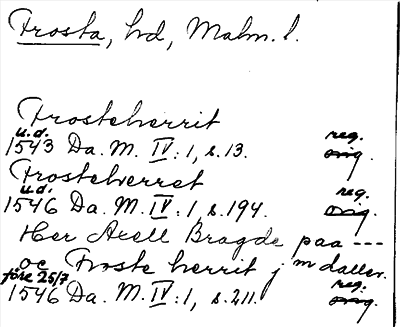 Frosta, hd, Malm. l.
Frosteherrit
u.d. reg.
1543 Da. M. IV:1, s. 13. orig.
Frosteherret
u.d. reg.
1546 Da. M. IV:1, s. 194. orig.
Her Axell Bragde paa ---
oc Froste herrit j m daller.
före 25/7 reg.
1546 Da. M. IV:1, s. 211. orig.